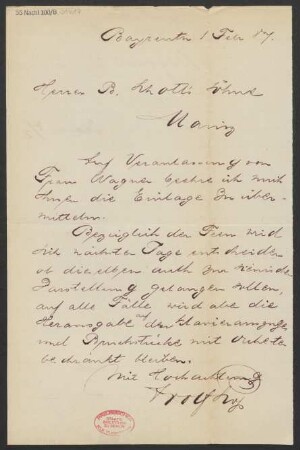 55 Nachl 100/B
Bayreuth 1 Feb 87.
Herrn B. Schott's Söhne
Mainz
Auf Veranlassung von
Frau Wagner beehre ich mich
Ihnen die Einlage zu über-
mitteln.
Bezüglich der Feen wird
sich nächster Tage entscheiden
ob dieselben auch zur
Darstellung gelangen sollen,
auf alle Fälle wird aber die
Herausgabe auf den Klavierauszug
und Bruchstücke mit Orchester
beschränkt bleiben.
Mit Hochachtung